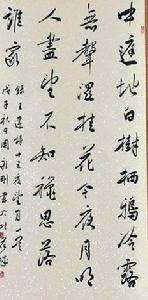 中庭地白樹栖鴉冷露
無聲濕桂花今夜月明
人盡望不知秋思落
誰家
錄王建詩十五夜望月一首